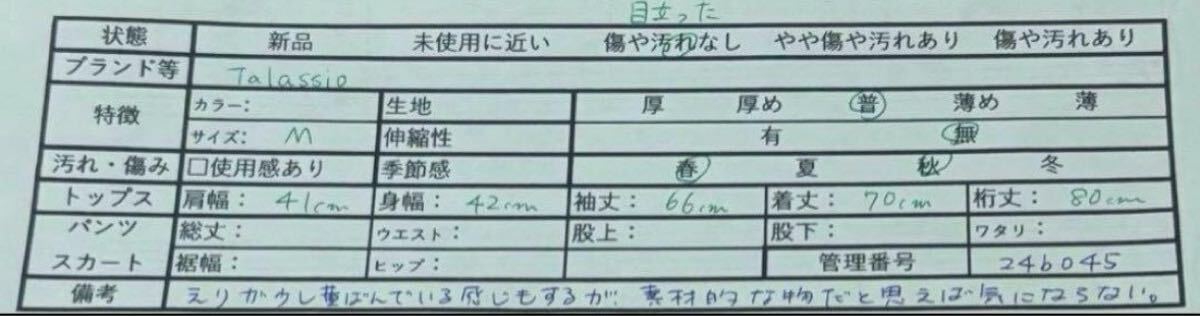 目立った
状態 新品 未使用に近い 傷や汚れなし やや傷や汚れあり 傷や汚れあり
ブランド等 Talassio
特徴 カラー： 生地 厚 厚め 普 薄め 薄
サイズ： M 伸縮性 有 無
汚れ・傷み □使用感あり 季節感 春 夏 秋 冬
トップス 肩幅： 41cm 身幅： 42cm 袖丈： 66cm 着丈： 70cm 裄丈： 80cm
パンツ 総丈： ウエスト： 股上： 股下： ワタリ：
スカート 裾幅： ヒップ： 管理番号 246045
備考 えりが少し黄ばんでいる感じもするが、素材的な物だと思えば気にならない。